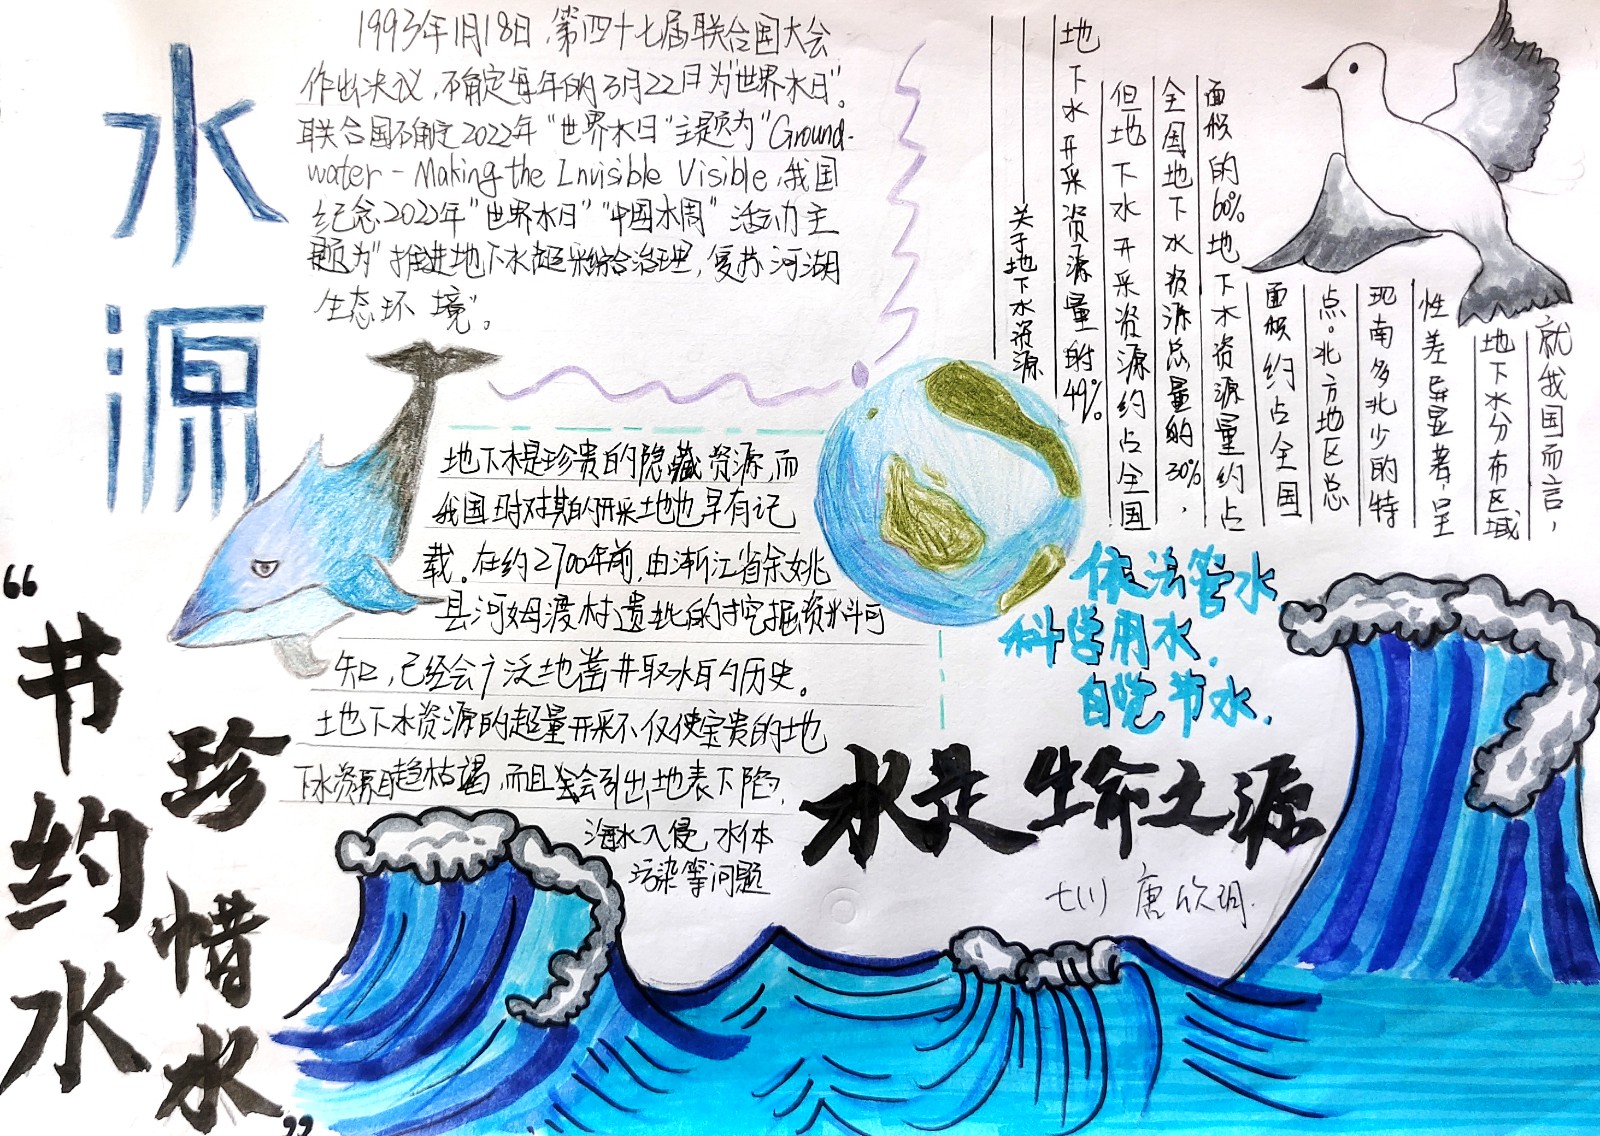 水源
1993年1月18日,第四十七届联合国大会
作出决议,确定每年的3月22日为"世界水日"。
联合国确定2022年"世界水日"主题为"Ground-
water - Making the Invisible Visible,我国
纪念2022年"世界水日""中国水周"活动主
题为"推进地下水超采综合治理,复苏河湖
生态环境"。
地下水是珍贵的隐藏资源,而
我国早有记
载。在约2700年前,由浙江省余姚
县河姆渡村遗址的挖掘资料可
知,已经会广泛地凿井取水的历史。
土地下水资源的超量开采不仅使宝贵的地
下水资源趋枯竭,而且会引出地表下陷,
海水入侵 水体
污染等问题
就我国而言,
地下水分布区域
性差异显著,呈
现南多北少的特
点。北方地区总
面积约占全国
面积的60%地下水资源量约占
全国地下水资源总量的30%,
但地下水开采资源约占全国
地下水开采资源量的49%。
——关于地下水资源
依法管水
科学用水.
自觉节水.
水是生命之源
唐欣玥.
"节约水
珍惜水"